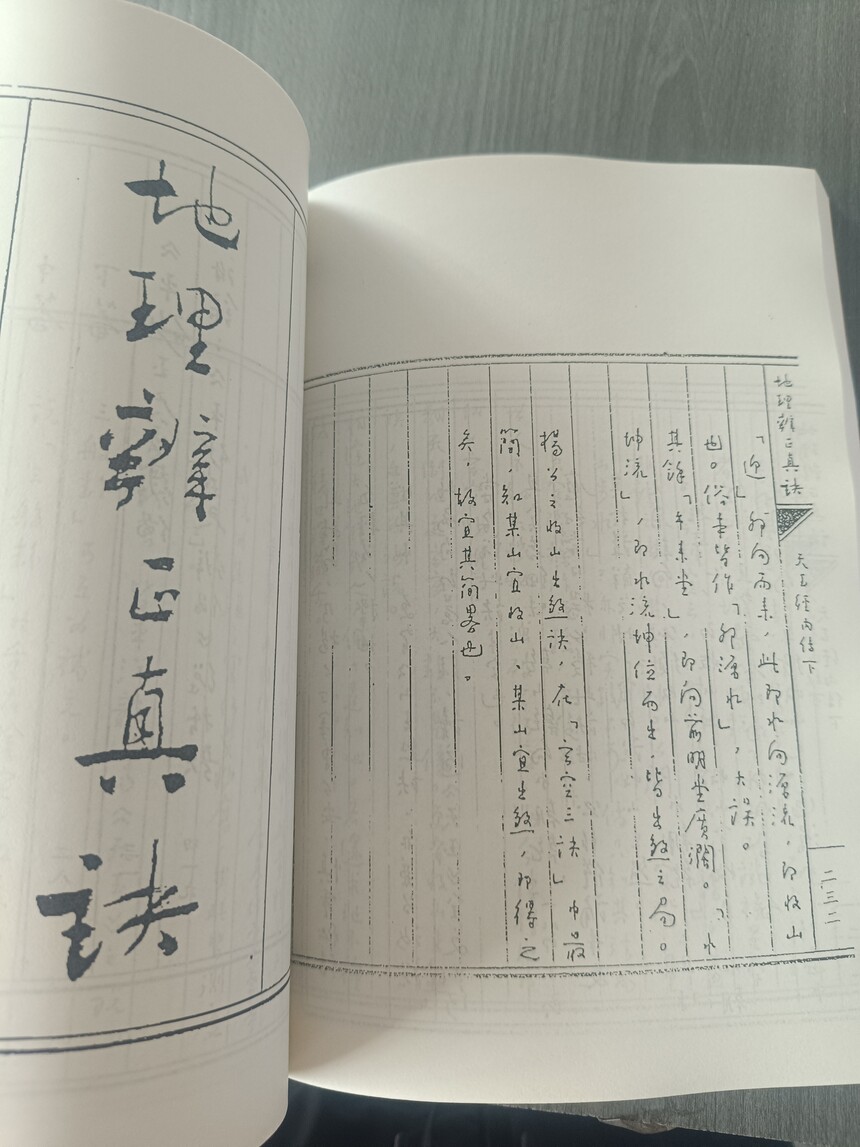 地理辨正真訣
天玉經內傳下
二三二
「迎」師向而来，此即水向源流，即收山
也。俗本皆作「神源水」，大誤。
其餘「年来堂」，即向前明堂廣濶。「水
坤流」，即水流坤位而出，皆出煞之局。
楊公之收山出煞訣，在「玄空三訣」中最
簡，知某山宜收山、某山宜出煞，即得之
矣，故宜其簡畧也。
地理辨正真訣